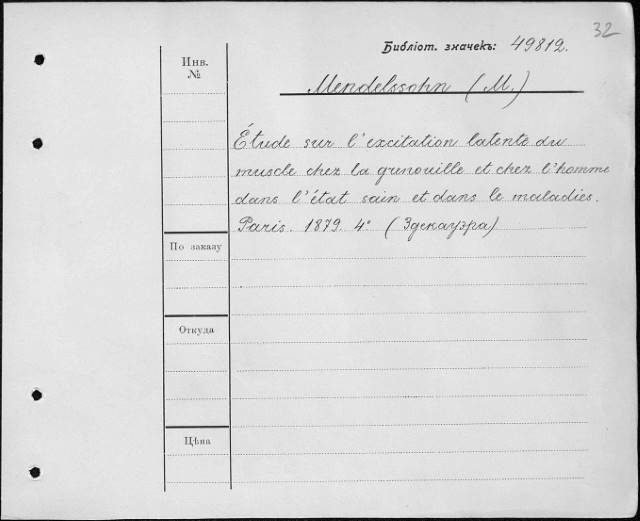 32
Библіот. значекъ: 49812.
Инв.
№
Mendelssohn (M.)
Étude sur l'excitation latente du
muscle chez la grenouille et chez l'homme
dans l'état sain et dans le maladies.
Paris. 1879. 4° (Здекауэра)
По заказу
Откуда
Цѣна